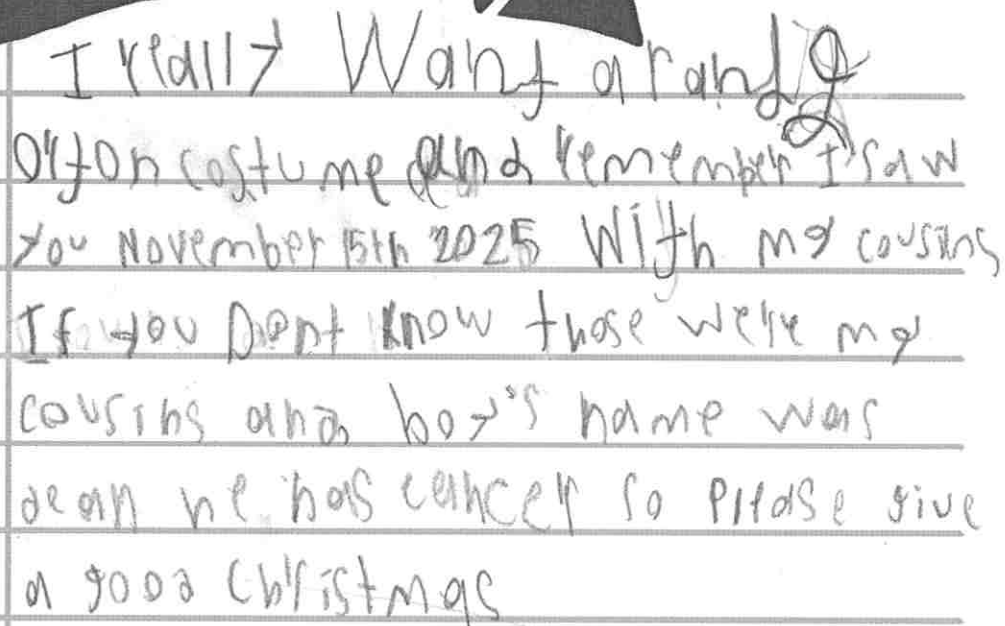 I really Want a randy
orton costume and remember I saw
you November 15th 2025 With my cousins
If you Dont know those were my
cousins and boy's name was
dean he has cancer so Please give
a good Christmas